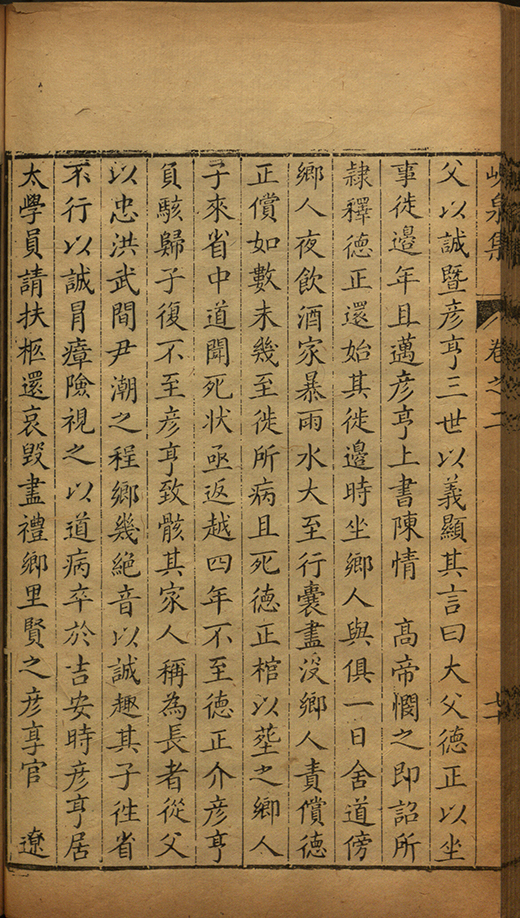 峴泉集 卷之二
父以誠暨彥亨三世以義顯其言曰大父德正以坐
事徙邊年且邁彥亨上書陳情 高帝憫之即詔所
隸釋德正還始其徙邊時坐鄉人與俱一日舍道傍
鄉人夜飲酒家暴雨水大至行囊盡沒鄉人責償德
正償如數未幾至徙所病且死德正棺以塟之鄉人
子來省中道聞死状亟返越四年不至德正介彥亨
負駭歸子復不至彥亨致骸其家人稱為長者從父
以忠洪武間尹潮之程鄉幾絕音以誠趣其子徃省
不行以誠冐瘴險視之以道病卒於吉安時彥亨居
太學員請扶柩還哀毀盡禮鄉里賢之彥享官 遼